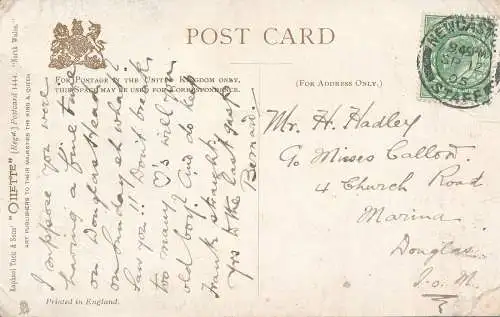 POST CARD
FOR POSTAGE IN THE UNITED KINGDOM ONLY,
THIS SPACE MAY BE USED FOR CORRESPONDENCE.
(FOR ADDRESS ONLY.)
NEWCAST
SP
05
STAFF
Raphael Tuck & Sons' "OILETTE" [Regd.] Postcard 1444. "North Wales."
ART PUBLISHERS TO THEIR MAJESTIES THE KING & QUEEN.
I suppose you were
having a fine time
on Douglas Head
on Sunday eh what
Saus yr!! Don't break
too many ♡s will you
old boy? And do keep
Frank straight.
Yrs to the last gasp
Bernard.
Mr. H. Hadley
c/o Misses Callow.
4 Church Road
Marina
Douglas
I.o.M.
Printed in England.